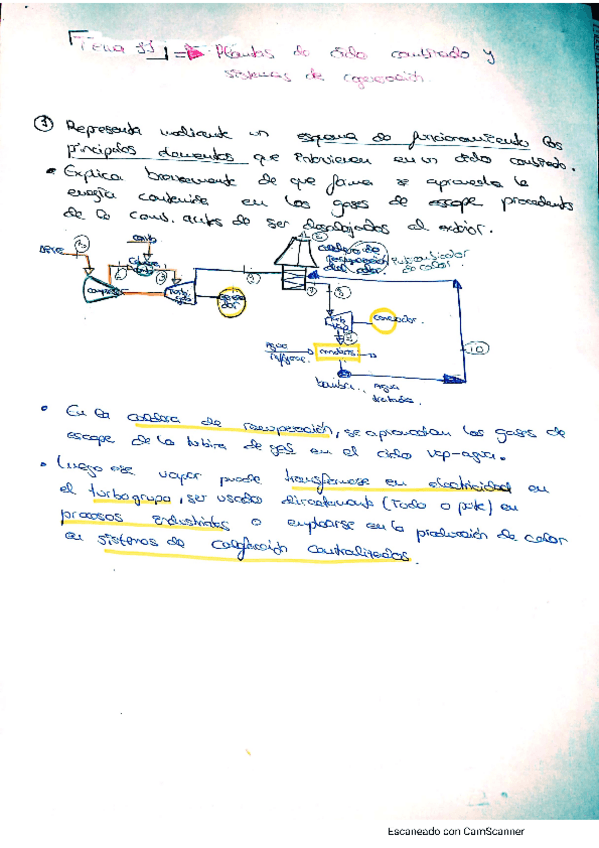 Tema 11 => Plantas de ciclo combinado y
sistemas de cogeneración.
① Representa mediante un esquema de funcionamiento los
principales elementos que intervienen en un ciclo combinado.
• Explica brevemente de que forma se aprovecha la
energía contenida en los gases de escape procedentes
de la comb. antes de ser despojados al exterior.
AIRE
comb
Cámara
comp
Turb
gas
caldera de
recuperación
del calor
intercambiador
de calor
turb
vap
Generador.
Agua
refriger.
condens.
bomba
Agua
tratada
10
• En la caldera de recuperación, se aprovechan los gases de
escape de la turbina de gas en el ciclo vap-agua.
• Luego ese vapor puede transformarse en electricidad en
el turbogrupo, ser usado directamente (Todo o parte) en
procesos industriales o emplearse en la producción de calor
en sistemas de calefacción centralizados.
Escaneado con CamScanner